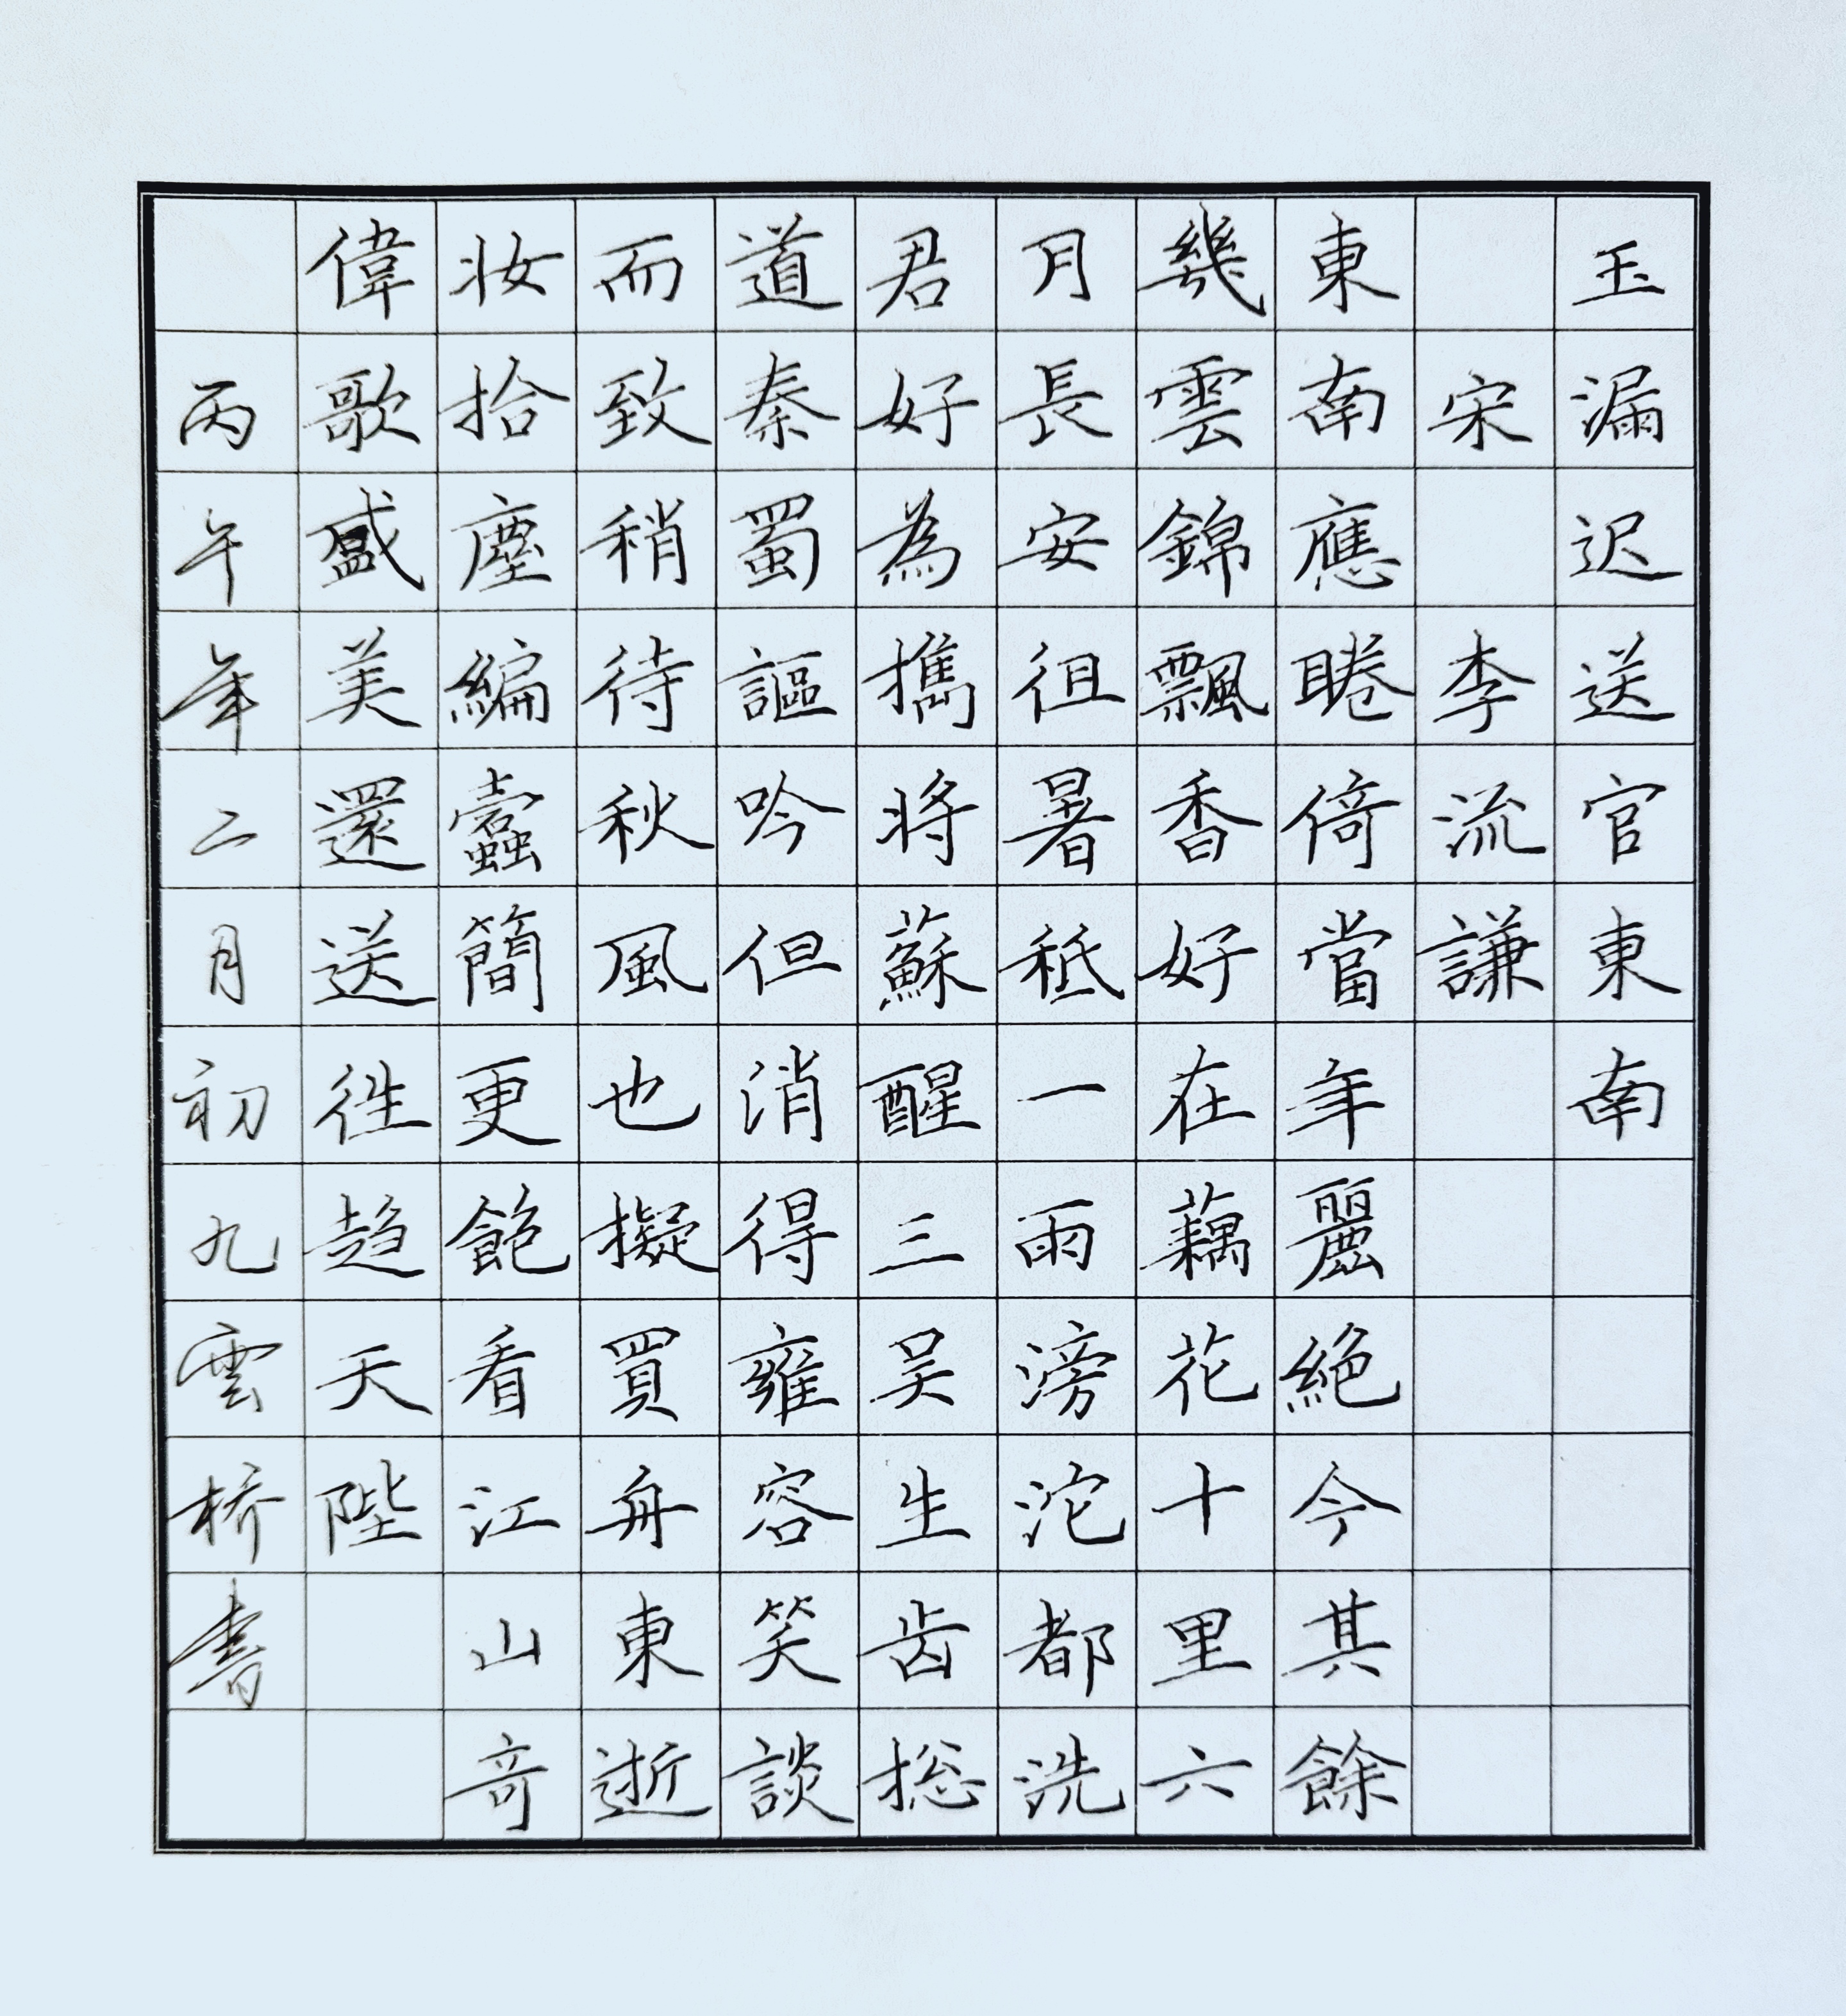 玉漏迟送官東南
宋李流謙
東南應睠倚當年麗絕今其餘
幾雲錦飄香好在藕花十里六
月長安徂暑秪一雨滂沱都洗
君好為攜將蘇醒三吴生齿捴
道秦蜀謳吟但消得雍容笑談
而致稍待秋風也擬買舟東逝
妝拾塵編蠹簡更飽看江山奇
偉歌盛美還送徃趋天陛
丙午年二月初九雲桥書